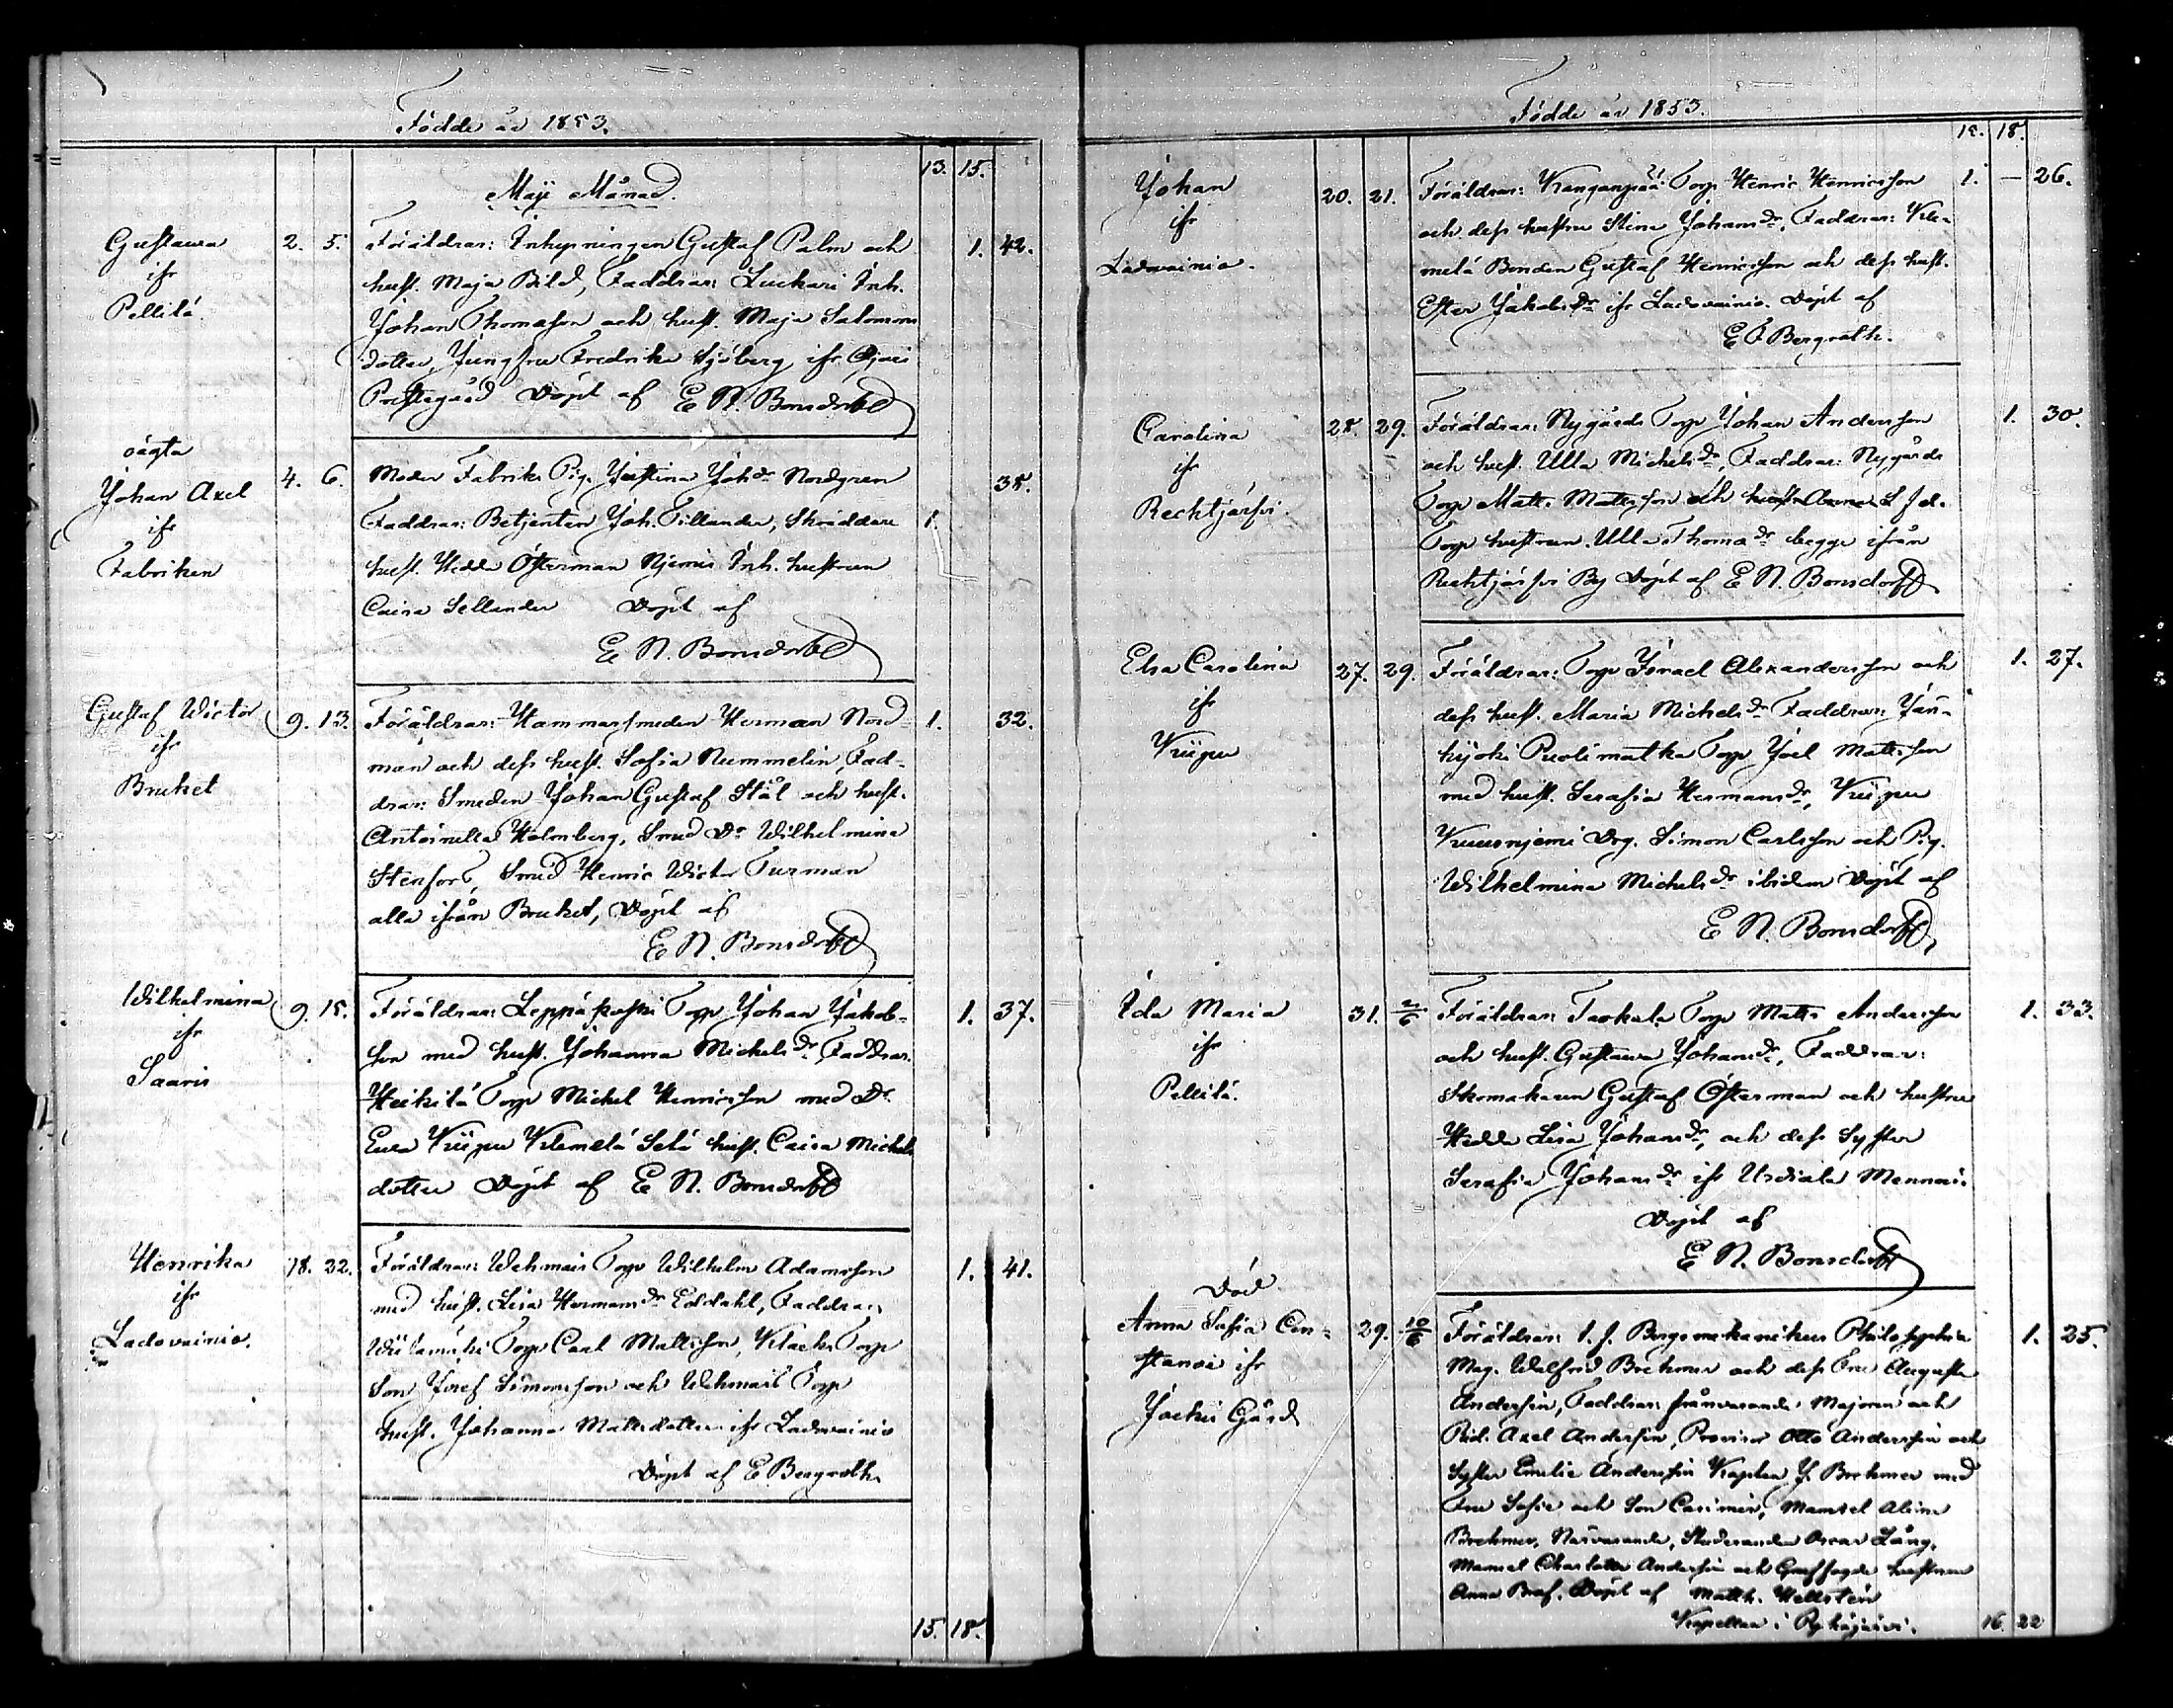 Födde år 1853.
13. 15.
Maji Månad.
Gustawa
ifr
Pellilä.
2. 5.
Föräldrar: Inhysningen Gustaf Palm och
hust. Maja Bild, Faddrar: Luckari Inh.
Johan Thomasson och hust. Maja Salomons
dotter, Jungfru Fredrika Sjöberg ifr
Prestegård Döpt af E N. Bonsdorff
1. 42.
oägta
Johan Axel
ifr
Fabriken
4. 6.
Moder Fabriks Pig. Justina Joh.dr Nordgren
Faddrar: Betjenten Joh. Tillander, Skräddare
hust. Hedda Österman Njemis Inh. hustrun
Caisa Sellander Döpt af
E N. Bonsdorff
1. 38.
Gustaf Wictor
ifr
Bruket
9. 13.
Föräldrar: Hammarsmeden Herman Nord-
man och dess hust. Sofia Nummelin, Fad-
drar: Smeden Johan Gustaf Stål och hust.
Antoinetta Holmberg, Smed Dr Wilhelmina
Stenfors, Smed Henric Wictor Furman
alla ifrån Bruket, Döpt af
E N. Bonsdorff
1. 32.
Wilhelmina
ifr
Saaris
9. 15.
Föräldrar: Leppäkoski Torp. Johan Jakob-
son med hust. Johanna Michelsdr, Faddrar:
Heikilä Torp Michel Henricsson med Dr
Eva Kriipu Klemelä Selå hust. Caisa Michels
dotter Döpt af E N. Bonsdorff
1. 37.
Henrika
ifr
Ladovainio.
18. 22.
Föräldrar: Wehmais Torp Wilhelm Adamsson
med hust. Lisa Hermansdr Eldahl, Faddrar:
Torp Carl Mattsson, Torp
Son Josef Simonsson och Wehmais Torp
hust. Johanna Mattsdotter ifr Ladovainio
Döpt af E. Bergroth.
1. 41.
15. 18.
Födde år 1853.
15. 18.
Johan
ifr
Ladovainio.
20. 21.
Föräldrar: Kanganpää Torp Henric Henricsson
och dess hustru Stina Johansdr, Faddrar: Kle-
melä Bonden Gustaf Henricsson och dess hust.
Ester Jakobsdr ifr Ladovainio. Döpt af
E F Bergroth.
1. — 26.
Carolina
ifr
Rechtjärfvi.
28. 29.
Föräldrar: Nygårds Torp Johan Andersson
och hust. Ulla Michelsdr, Faddrar: Nygårds
Torp Matts Mattsson och
Torp hustrun Ulla Thomasdr begge ifrån
Rechtjärfvi By Döpt af E N. Bonsdorff
1. 30.
Elsa Carolina
ifr
Kriipu
27. 29.
Föräldrar: Torp Israel Alexandersson och
dess hust. Maria Michelsdr Faddrar: Jän-
hijoki Puolimatka Torp Joel Mattsson
med hust. Serafia Hermansdr, Kriipu
Kuusniemi Drg. Simon Carlsson och Pig.
Wilhelmina Michelsdr ibidem Döpt af
E N. Bonsdorff
1. 27.
Ida Maria
ifr
Pellilä.
31. 2/6
Föräldrar: Taokala Torp Matts Andersson
och hust. Gustawa Johansdr, Faddrar:
Skomakaren Gustaf Österman och hustru
Hedda Lisa Johansdr, och dess Syster
Serafia Johansdr ifr Urdiala Mennois.
Döpt af
E N. Bonsdorff
1. 33.
Död.
Anna Sofia Con-
stansia ifr
Jockis Gård
29. 10/6
Föräldrar: Bergsmekanikus Philosophia
Mag. Walfrid Brehmer och dess Fru Augusta
Andersin, Faddrar: frånvarande Majoren och
Rid. Axel Andersin, Provisor Otto Andersin och
Syster Emelie Andersin Kapten J. Brehmer med
Fru Sofie och Son Casimir, Mamsel Alina
Brehmer, Närvarande, Studeranden Oscar Lång,
Mamsel Charlotta Andersin och hustrun
Anna Döpt af Matth. Hellstén
Kapellan i Pyhäjärvi.
1. 25.
16. 22